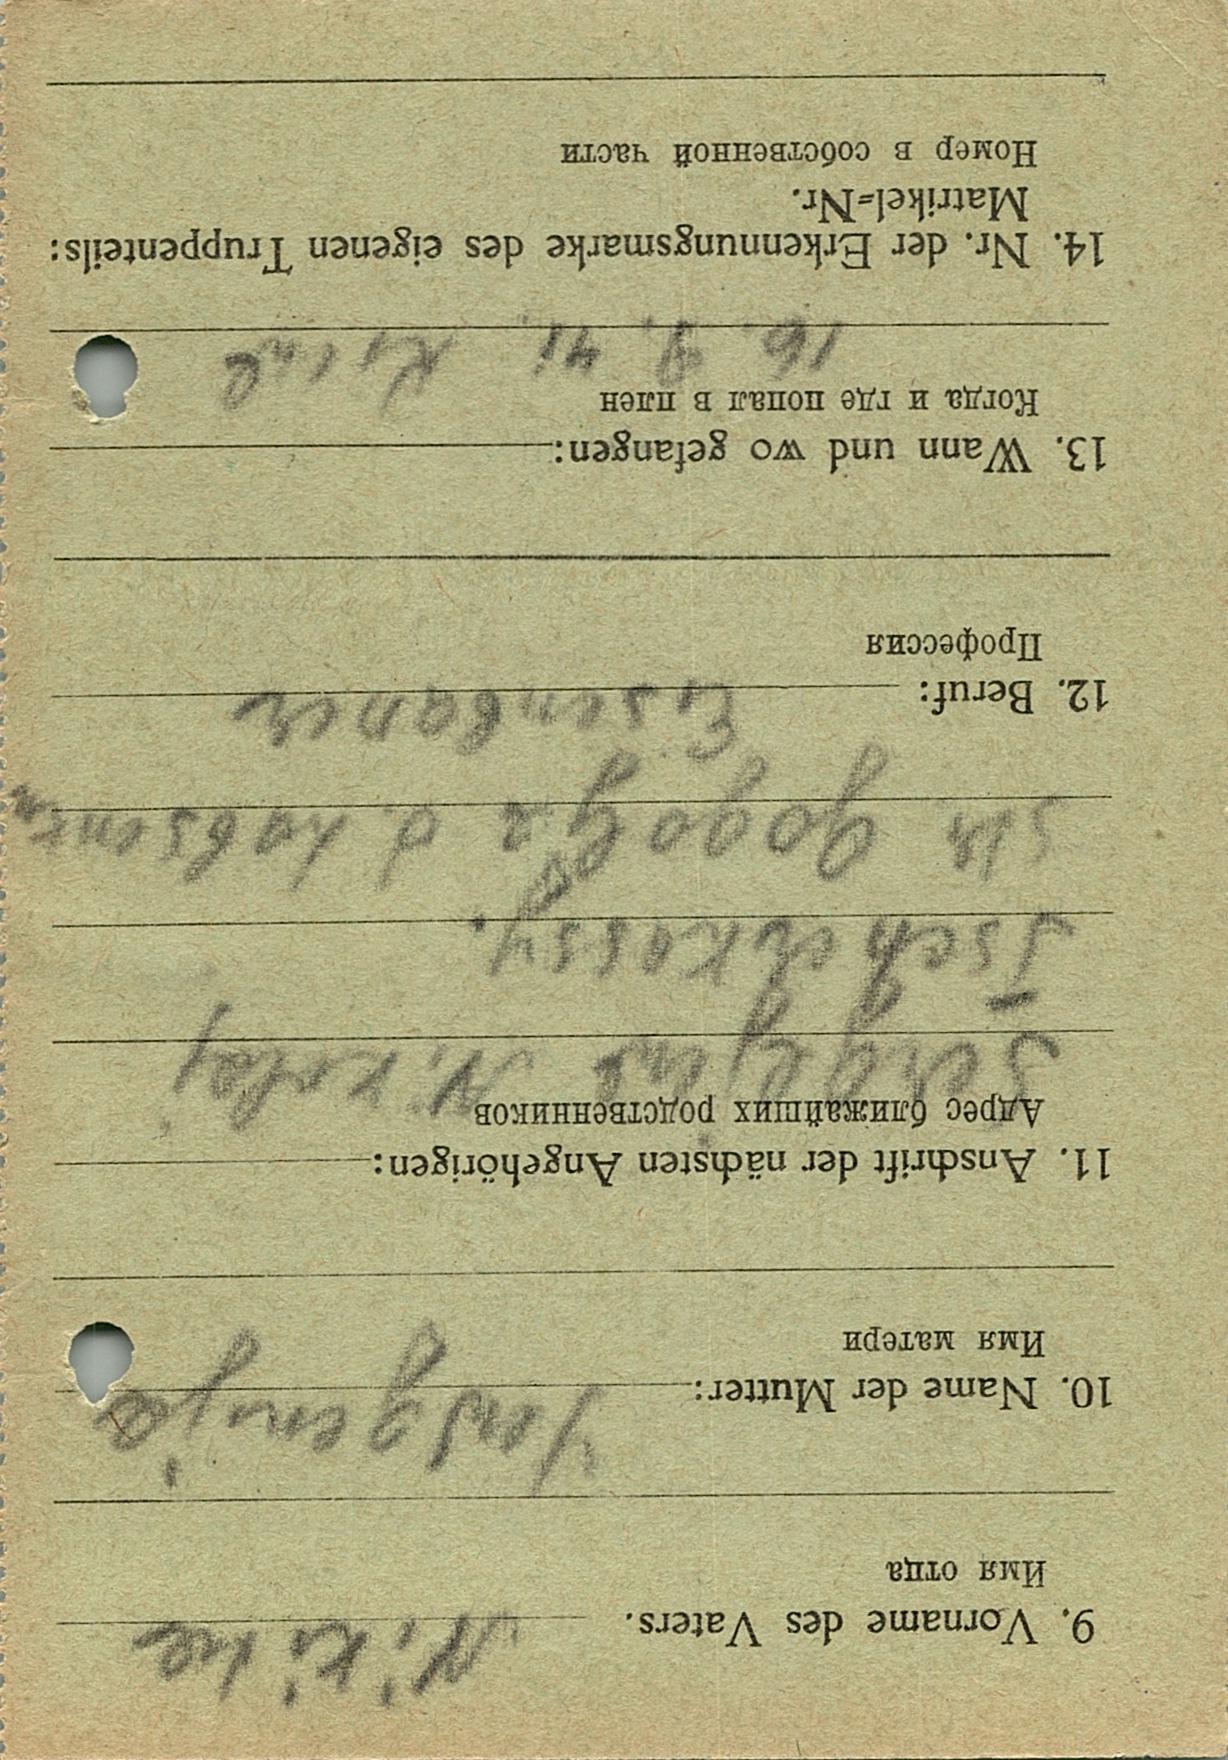 9. Vorname des Vaters. Nikita
Имя отца
10. Name der Mutter: Yewgenija
Имя матери
11. Anschrift der nächsten Angehörigen:
Адрес ближайших родственников
Nikolaj
Tscherkassy.
Str. d.
12. Beruf: Eisenbaner
Профессия
13. Wann und wo gefangen:
Когда и где попал в плен
16. 9. 41.
14. Nr. der Erkennungsmarke des eigenen Truppenteils:
Matrikel=Nr.
Номер в собственной части